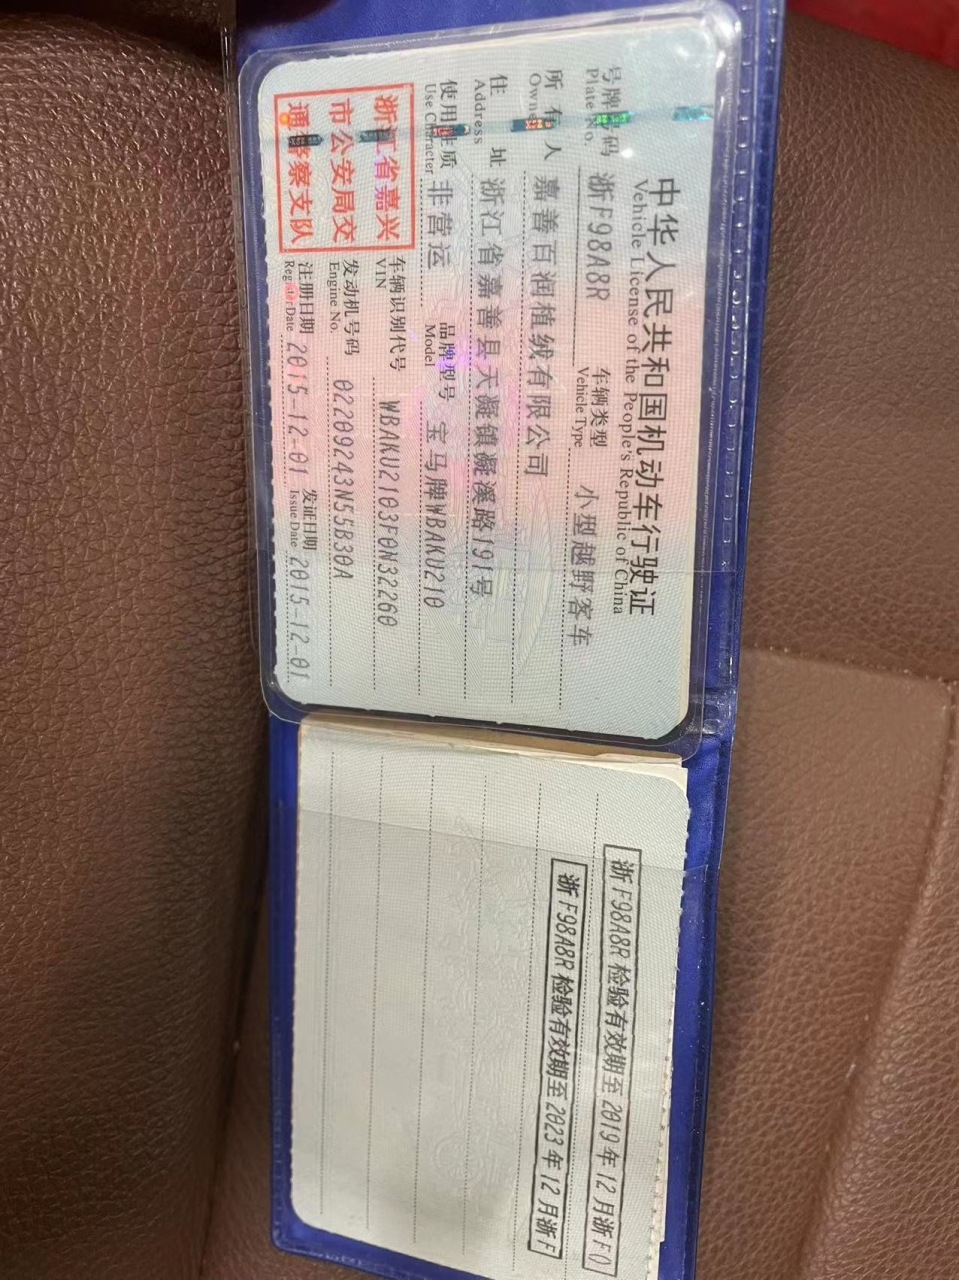 中华人民共和国机动车行驶证
Vehicle License of the People's Republic of China
号牌号码 浙F98A8R 车辆类型 小型越野客车
Plate No. Vehicle Type
所有人 嘉善百润植绒有限公司
Owner
住址 浙江省嘉善县天凝镇凝溪路191号
Address
使用性质 非营运 品牌型号 宝马牌WBAKU210
Use Character Model
浙江省嘉兴
市公安局交
通警察支队
车辆识别代号 WBAKU2103F0N32260
VIN
发动机号码 02209243N55B30A
Engine No.
注册日期 2015-12-01 发证日期 2015-12-01
Register Date Issue Date
浙F98A8R 检验有效期至 2019年12月浙F()
浙F98A8R 检验有效期至 2023年12月浙F